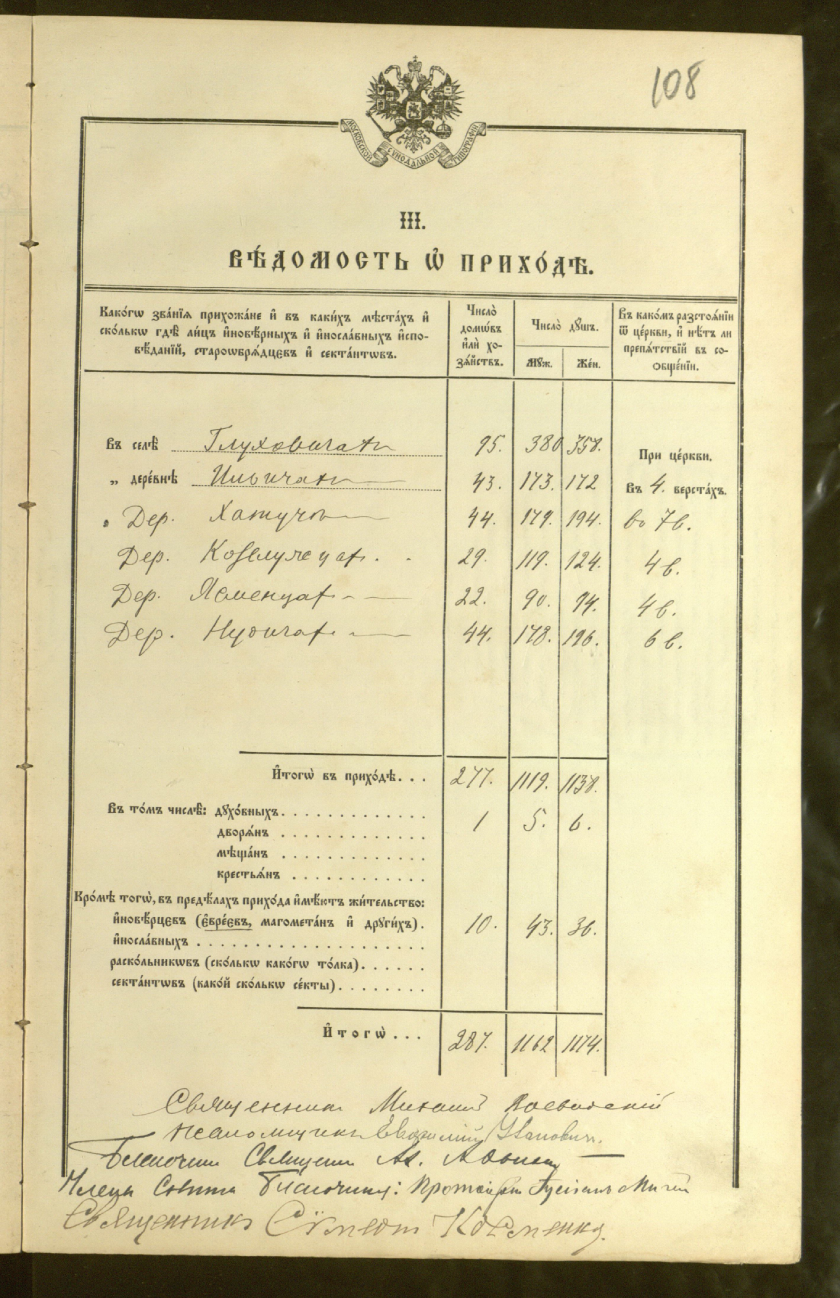 108
МОСКОВСКОЙ СѴНОДАЛЬНОЙ ТИПОГРАФІИ
III.
ВѢ́ДОМОСТЬ Ѡ҆ ПРИХО́ДѢ.
Како́гѡ зва́нїѧ прихожа́не и҆ въ каки́хъ мѣста́хъ и҆ ско́лькѡ гдѣ̀ ли́цъ и҆новѣ́рныхъ и҆ и҆носла́вныхъ и҆сповѣ́данїй, староѡбрѧ́дцевъ и҆ секта́нтѡвъ.
Число̀ домѡ́въ и҆лѝ хозѧ́йствъ.
Число̀ дꙋ́шъ.
Мꙋж. Же́н.
Въ како́мъ разстоѧ́нїи ѿ це́ркви, и҆ нѣ́тъ ли препѧ́тствїй въ соѻбще́нїи.
Въ селѣ̀ Глуховичахъ 95. 380 358. При це́ркви.
„ дере́внѣ Ильичахъ 43. 173. 172 Въ 4. верста́хъ.
„ Дер. 44. 179. 194. во 7 в.
Дер. 29. 119. 124. 4 в.
Дер. 22. 90. 94. 4 в.
Дер. 44. 178. 196. 6 в.
И҆тогѡ̀ въ прихо́дѣ. . . 277. 1119. 1138.
Въ то́мъ числѣ̀: дꙋхо́вныхъ. . . . . . . . . . . . . 1 5. 6.
дворѧ́нъ . . . . . . . . . . . . .
мѣща́нъ . . . . . . . . . . . . .
крестьѧ́нъ . . . . . . . . . . . .
Кро́мѣ тогѡ̀, въ предѣ́лахъ прихо́да и҆мѣ́ютъ жи́тельство:
и҆новѣ́рцевъ (є҆вре́евъ, магомета́нъ и҆ дрꙋги́хъ) . 10. 43. 36.
и҆носла́вныхъ . . . . . . . . . . . . . . . . . . . . .
раско́льникѡвъ (ско́лькѡ како́гѡ то́лка) . . . . . .
секта́нтѡвъ (како́й ско́лькѡ се́кты) . . . . . . . .
И҆тогѡ̀ . . . 287. 1162 1174.
Священникъ Михаилъ
Псаломщикъ
Благочинный Священникъ Ал.
Члены Совѣта Благочинія: Протоіерей
Священникъ Сѵмеонъ